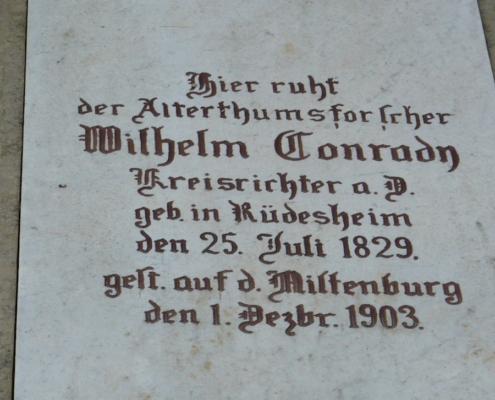 Hier ruht
der Alterthumsforscher
Wilhelm Conrady
Kreisrichter a. D.
geb. in Rüdesheim
den 25. Juli 1829.
gest. auf d. Miltenburg
den 1. Dezbr. 1903.